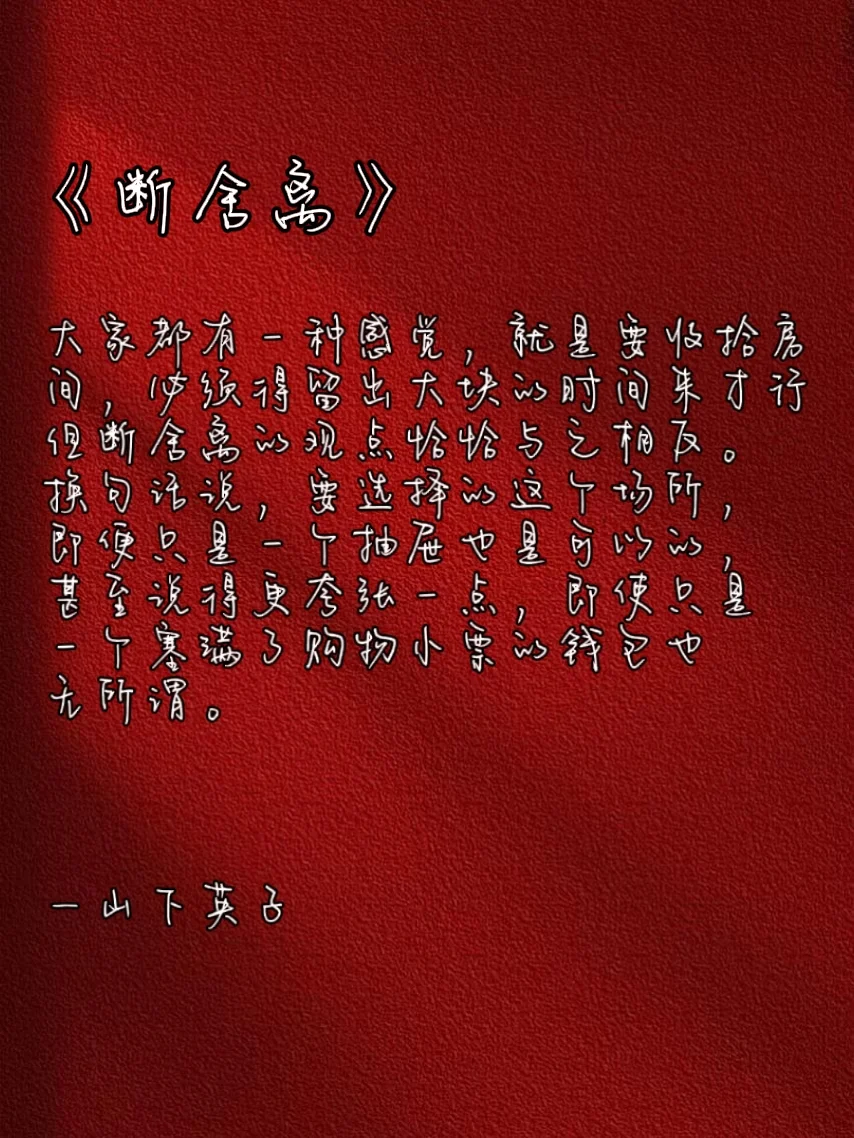 《断舍离》
大家都有一种感觉，就是要收拾房
间，必须得留出大块的时间来才行
但断舍离的观点恰恰与之相反。
换句话说，要选择的这个场所，
即便只是一个抽屉也是可以的，
甚至说得更夸张一点，即使只是
一个塞满了购物小票的钱包也
无所谓。
一山下英子